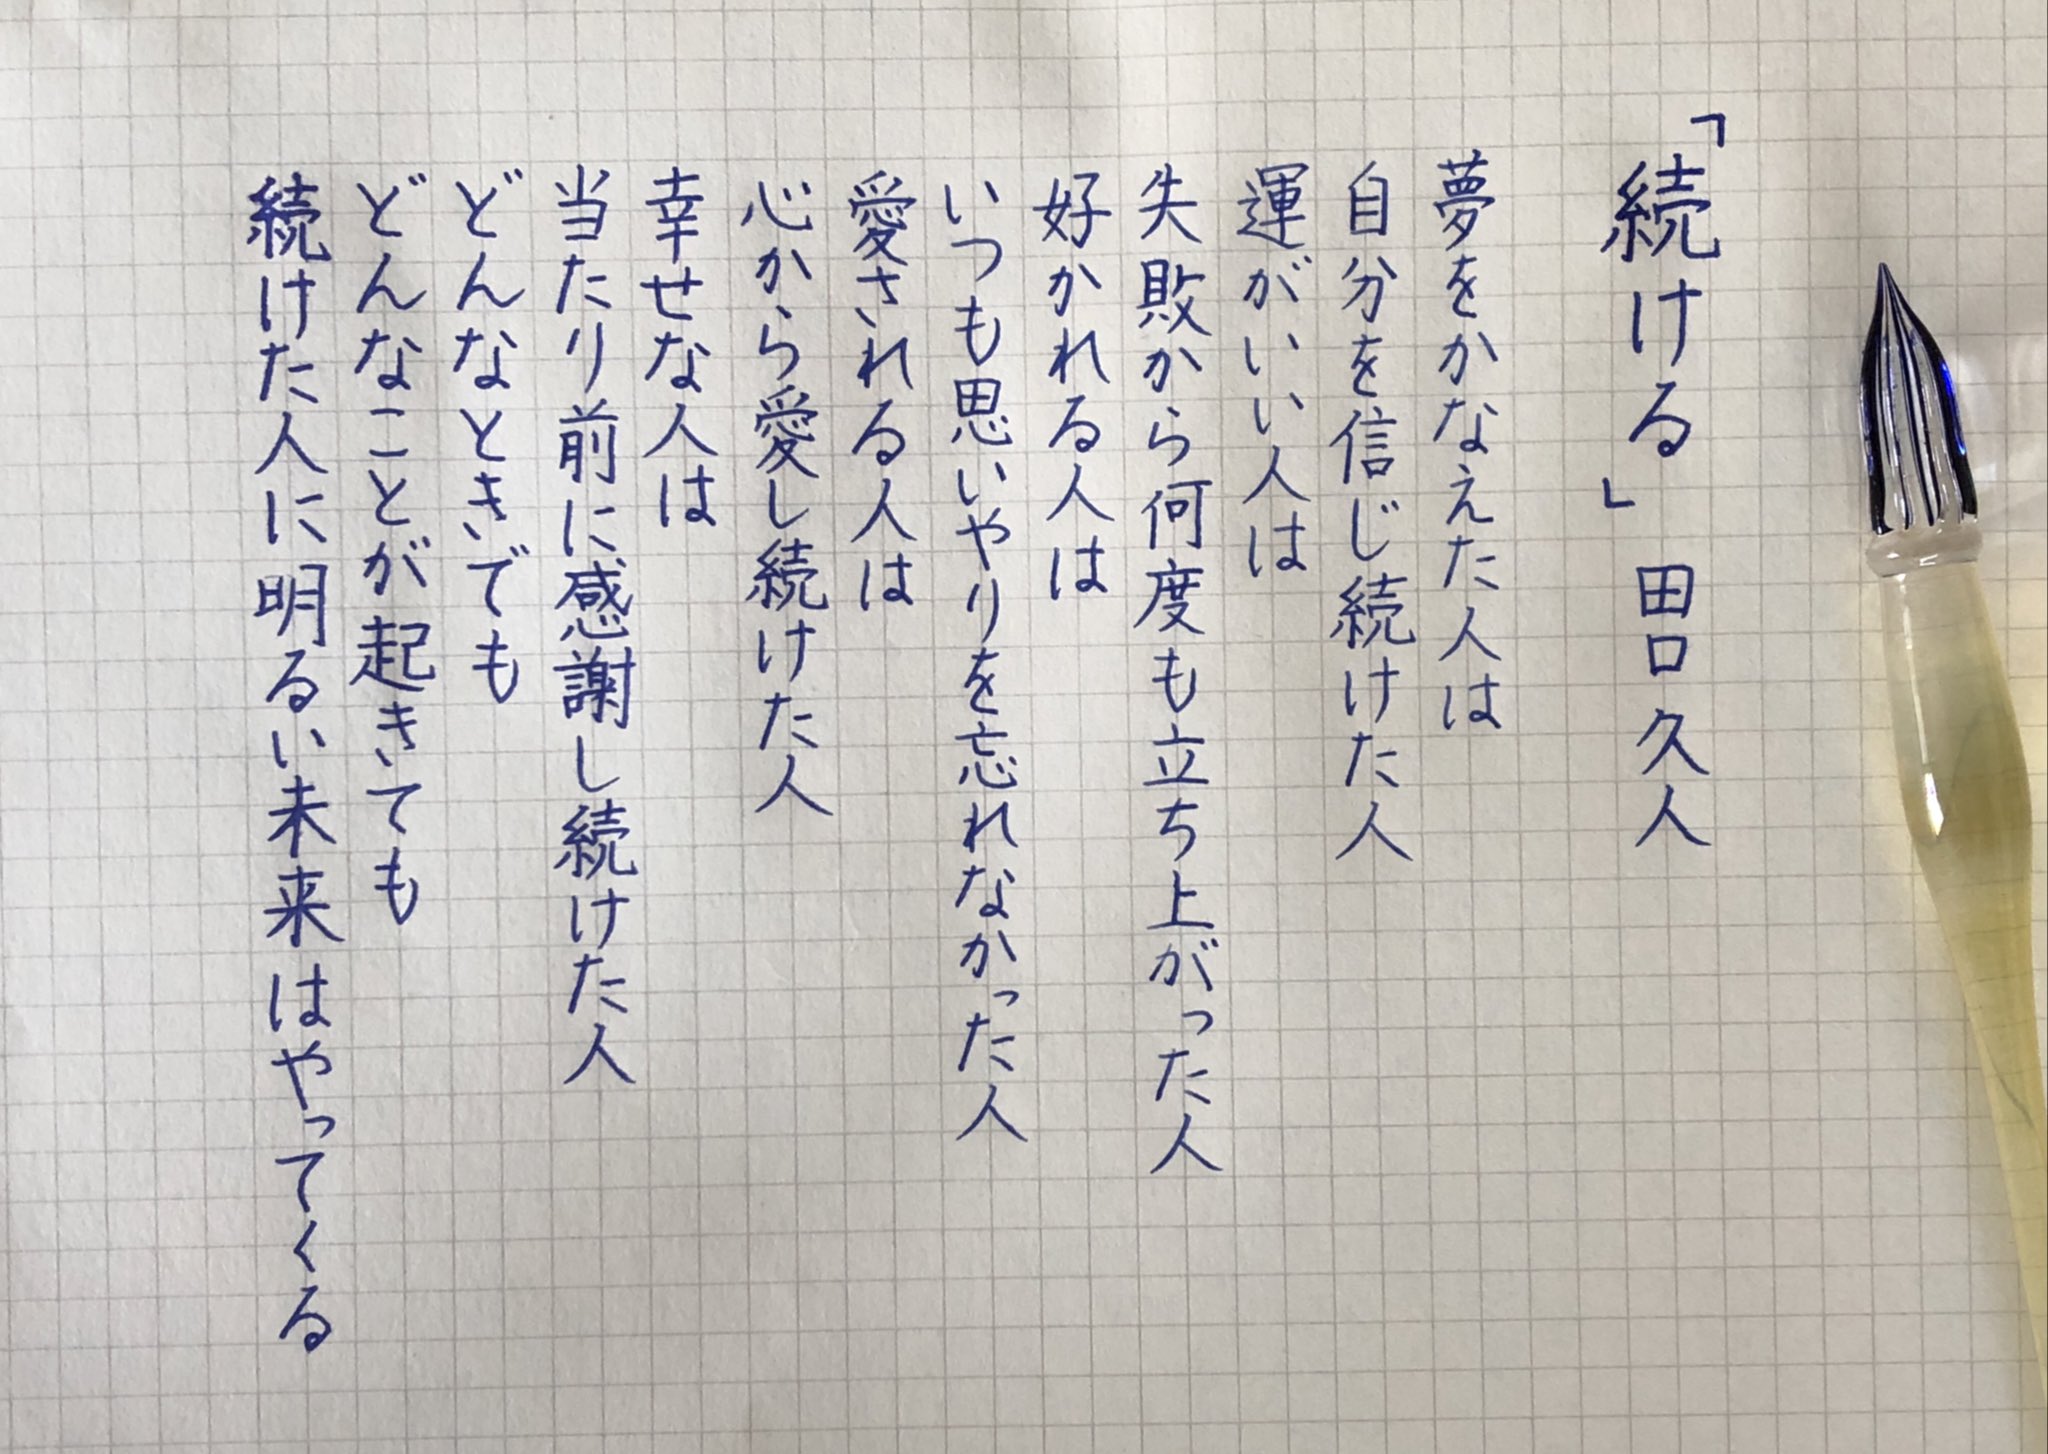 「続ける」 田口久人
夢をかなえた人は
自分を信じ続けた人
運がいい人は
失敗から何度も立ち上がった人
好かれる人は
いつも思いやりを忘れなかった人
愛される人は
心から愛し続けた人
幸せな人は
当たり前に感謝し続けた人
どんなときでも
どんなことが起きても
続けた人に明るい未来はやってくる